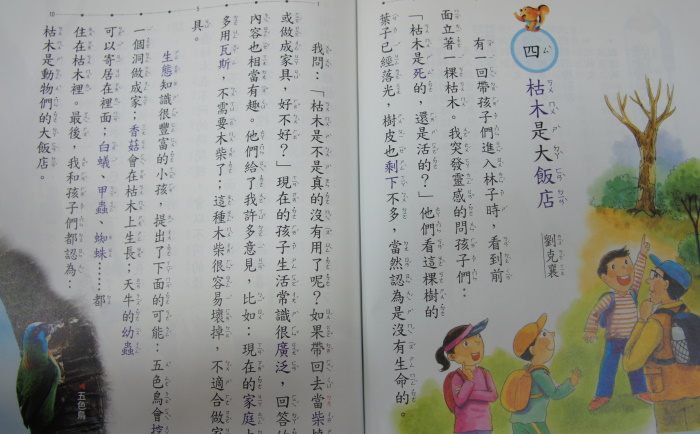 四
枯木是大飯店
劉克襄
有一回帶孩子們進入林子時，看到前
面立著一棵枯木。我突發靈感的問孩子們：
「枯木是死的，還是活的？」他們看這棵樹的
葉子已經落光，樹皮也剩下不多，當然認為是沒有生命的。
我問：「枯木是不是真的沒有用了呢？如果帶回去當柴燒
或做成家具，好不好？」現在的孩子生活常識很廣泛，回答的
內容也相當有趣。他們給了我許多意見，比如：現在的家庭
多用瓦斯，不需要木柴了；這種木柴很容易壞掉，不適合做家
具。
生態知識很豐富的小孩，提出了下面的可能：五色鳥會挖
一個洞做成家；香菇會在枯木上生長；天牛的幼蟲
可以寄居在裡面；白蟻、甲蟲、蜘蛛……都
住在枯木裡。最後，我和孩子們都認為：
枯木是動物們的大飯店。
五色鳥
10